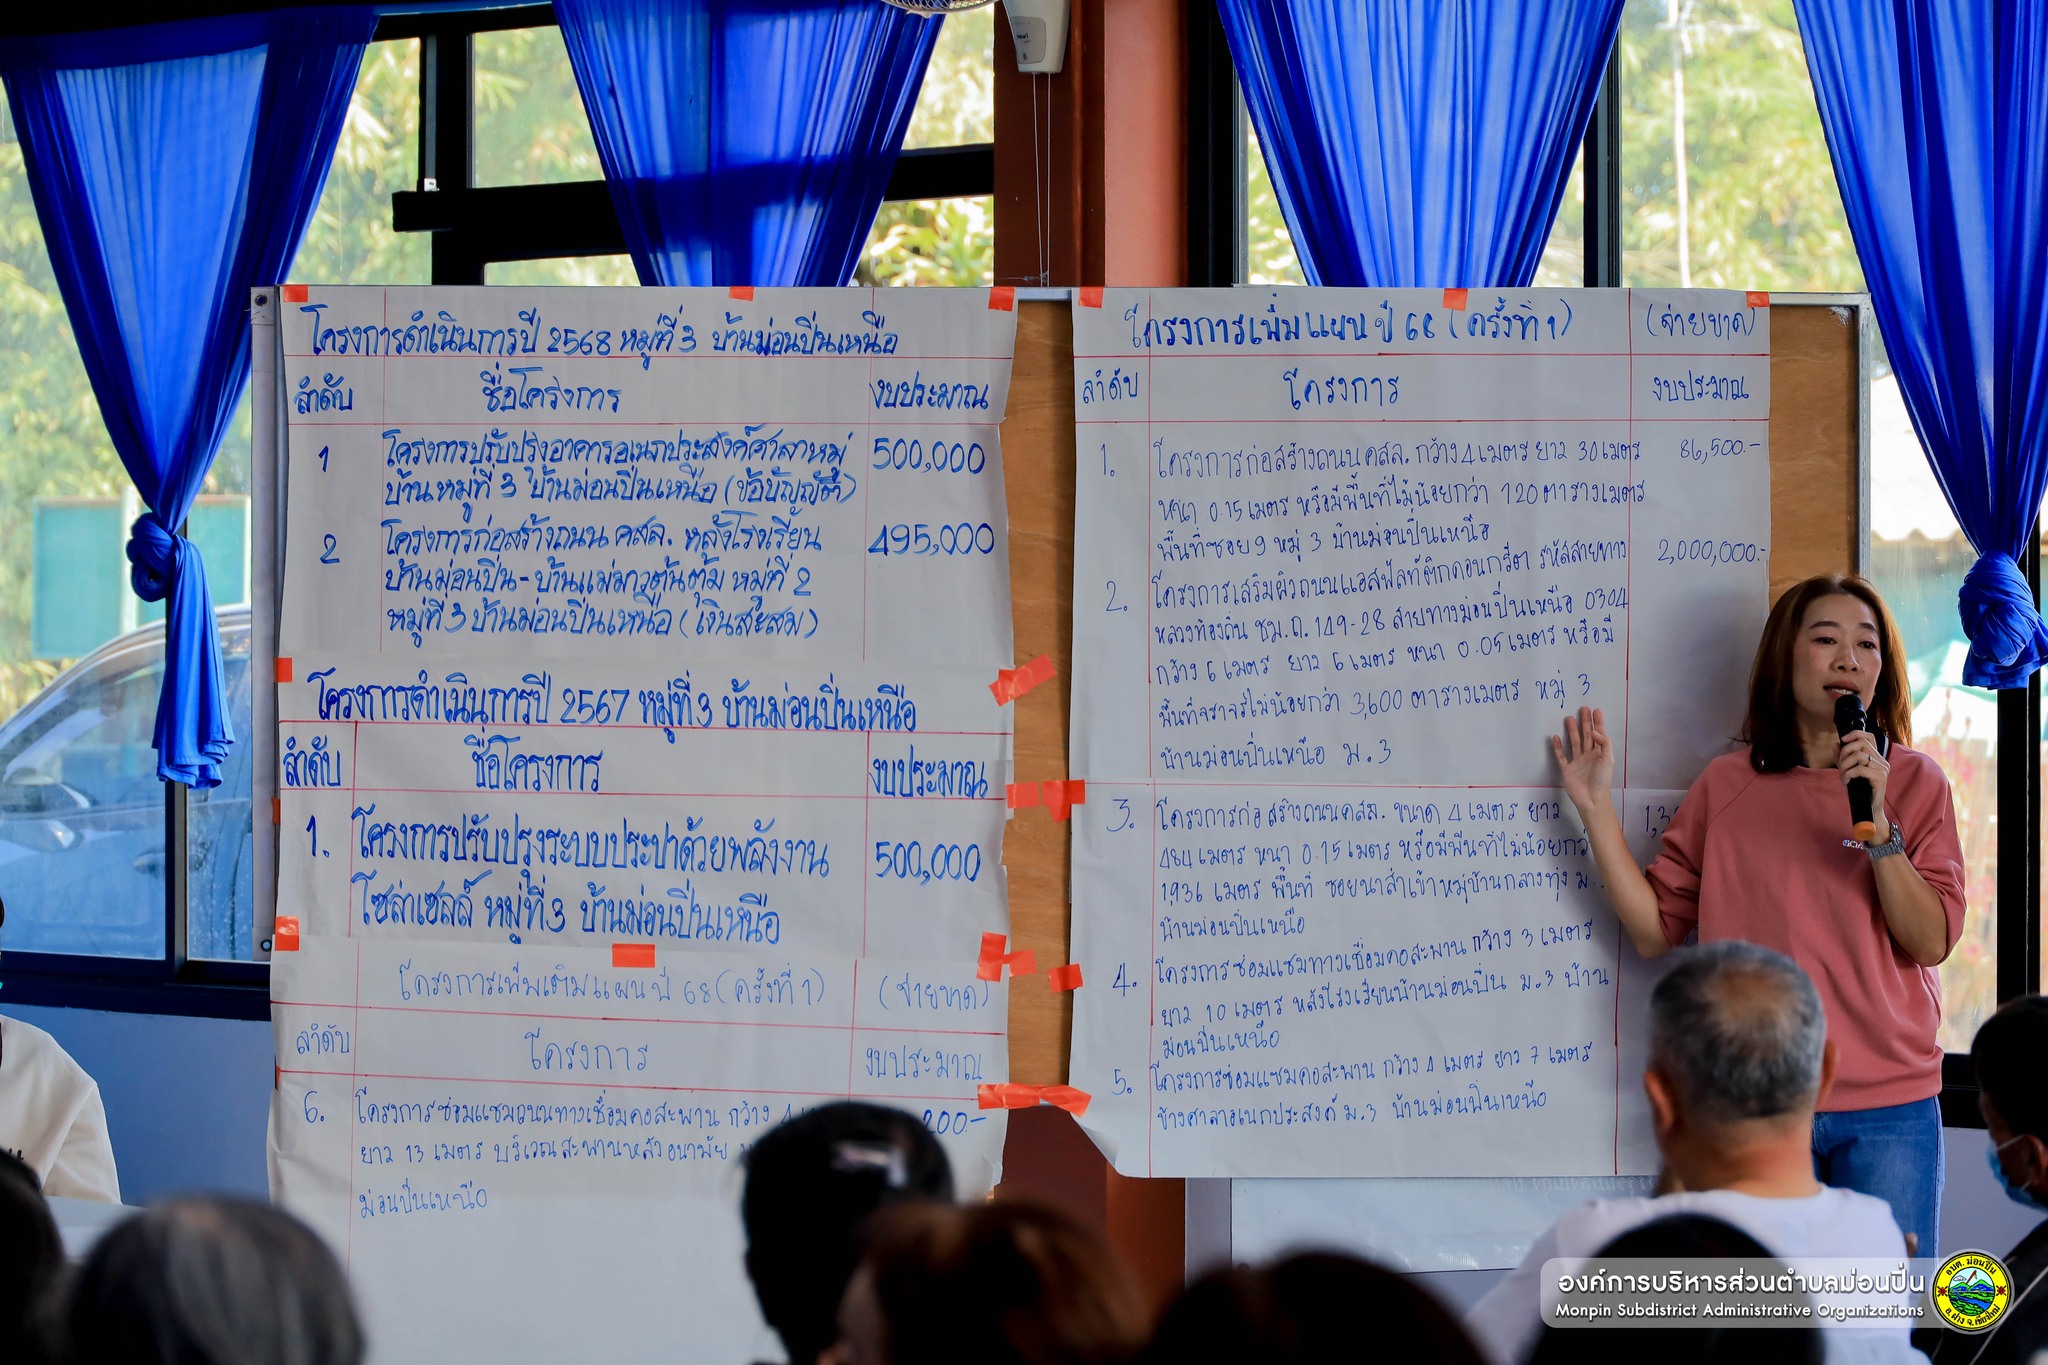 โครงการดำเนินการปี 2568 หมู่ที่ 3 บ้านม่อนปิ่นเหนือ
ลำดับ ชื่อโครงการ งบประมาณ
1 โครงการปรับปรุงอาคารอเนกประสงค์ศาลาหมู่ 500,000
บ้านหมู่ที่ 3 บ้านม่อนปิ่นเหนือ (ข้อบัญญัติ)
2 โครงการก่อสร้างถนน คสล. หลังโรงเรียน 495,000
บ้านม่อนปิ่น - บ้านแม่มาวต้นตุ้ม หมู่ที่ 2
หมู่ที่ 3 บ้านม่อนปิ่นเหนือ (เงินสะสม)
โครงการดำเนินการปี 2567 หมู่ที่ 3 บ้านม่อนปิ่นเหนือ
ลำดับ ชื่อโครงการ งบประมาณ
1. โครงการปรับปรุงระบบประปาด้วยพลังงาน 500,000
โซล่าเซลล์ หมู่ที่ 3 บ้านม่อนปิ่นเหนือ
โครงการเพิ่มเติมแผนปี 68 (ครั้งที่ 1) (จ่ายขาด)
ลำดับ โครงการ งบประมาณ
6. โครงการซ่อมแซมถนนทางเชื่อมคอสะพาน กว้าง 200.-
ยาว 13 เมตร บริเวณสะพานหลังอนามัย
ม่อนปิ่นเหนือ
โครงการเพิ่มแผนปี 68 (ครั้งที่ 1) (จ่ายขาด)
ลำดับ โครงการ งบประมาณ
1. โครงการก่อสร้างถนน คสล. กว้าง 4 เมตร ยาว 30 เมตร 86,500.-
หนา 0.15 เมตร หรือมีพื้นที่ไม่น้อยกว่า 120 ตารางเมตร
พื้นที่ซอย 9 หมู่ 3 บ้านม่อนปิ่นเหนือ
2. โครงการเสริมผิวถนนแอสฟัลท์ติกคอนกรีต รหัสสายทาง 2,000,000.-
หลวงท้องถิ่น ชม.ถ. 149-28 สายทางม่อนปิ่นเหนือ 0304
กว้าง 6 เมตร ยาว 6 เมตร หนา 0.05 เมตร หรือมี
พื้นที่จราจรไม่น้อยกว่า 3,600 ตารางเมตร หมู่ 3
บ้านม่อนปิ่นเหนือ ม.3
3. โครงการก่อสร้างถนนคสล. ขนาด 4 เมตร ยาว
484 เมตร หนา 0.15 เมตร หรือมีพื้นที่ไม่น้อยกว่า
1,936 เมตร พื้นที่ ซอยนาสำเข้าหมู่บ้านกลางทุ่ง
บ้านม่อนปิ่นเหนือ
4. โครงการซ่อมแซมทางเชื่อมคอสะพาน กว้าง 3 เมตร
ยาว 10 เมตร หลังโรงเรียนบ้านม่อนปิ่น ม.3 บ้าน
ม่อนปิ่นเหนือ
5. โครงการซ่อมแซมคอสะพาน กว้าง 4 เมตร ยาว 7 เมตร
ข้างศาลาอเนกประสงค์ ม.3 บ้านม่อนปิ่นเหนือ
องค์การบริหารส่วนตำบลม่อนปิ่น
Monpin Subdistrict Administrative Organizations
อบต. ม่อนปิ่น
อ.ฝาง จ.เชียงใหม่